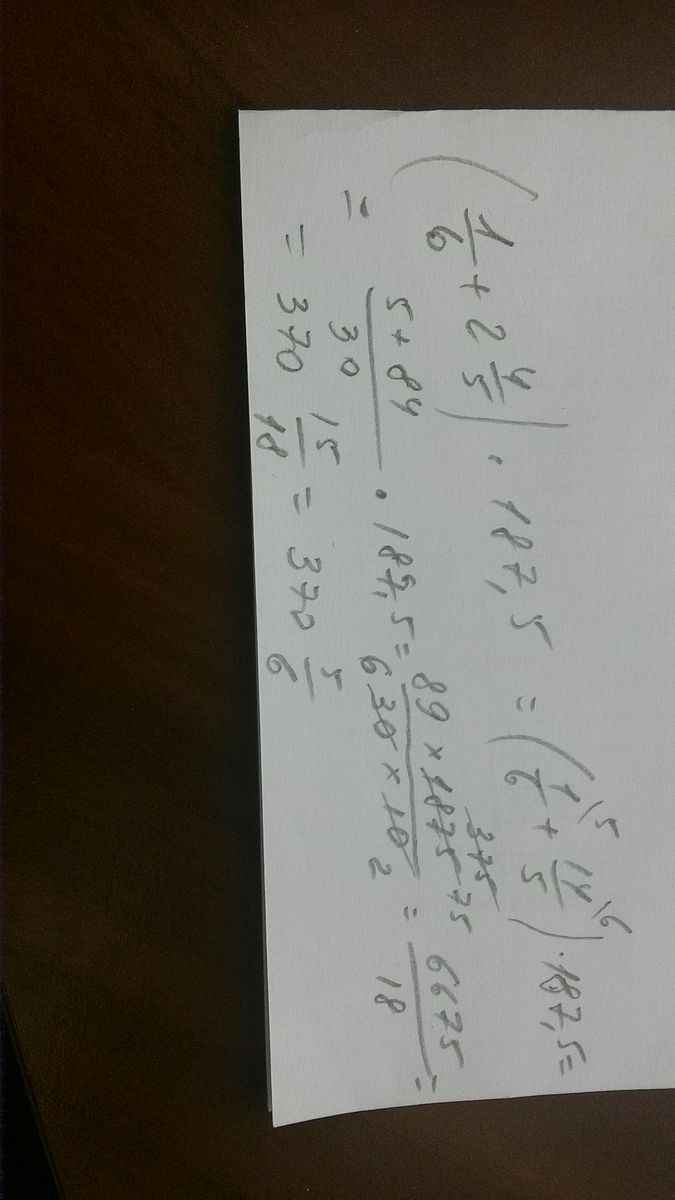 (1/6 + 2 4/5) · 187,5 = (1/6 \5 + 14/5 \6) · 187,5 =
= (5 + 84)/30 · 187,5 = (89 × 1875 375 75)/(6 30 × 10 2) = 6675/18 =
= 370 15/18 = 370 5/6